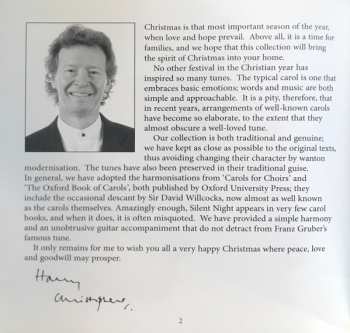 Christmas is that most important season of the year,
when love and hope prevail. Above all, it is a time for
families, and we hope that this collection will bring
the spirit of Christmas into your home.
No other festival in the Christian year has
inspired so many tunes. The typical carol is one that
embraces basic emotions; words and music are both
simple and approachable. It is a pity, therefore, that
in recent years, arrangements of well-known carols
have become so elaborate, to the extent that they
almost obscure a well-loved tune.
Our collection is both traditional and genuine;
we have kept as close as possible to the original texts,
thus avoiding changing their character by wanton
modernisation. The tunes have also been preserved in their traditional guise.
In general, we have adopted the harmonisations from 'Carols for Choirs' and
'The Oxford Book of Carols', both published by Oxford University Press; they
include the occasional descant by Sir David Willcocks, now almost as well known
as the carols themselves. Amazingly enough, Silent Night appears in very few carol
books, and when it does, it is often misquoted. We have provided a simple harmony
and an unobtrusive guitar accompaniment that do not detract from Franz Gruber's
famous tune.
It only remains for me to wish you all a very happy Christmas where peace, love
and goodwill may prosper.
Harry
Christophers.
2